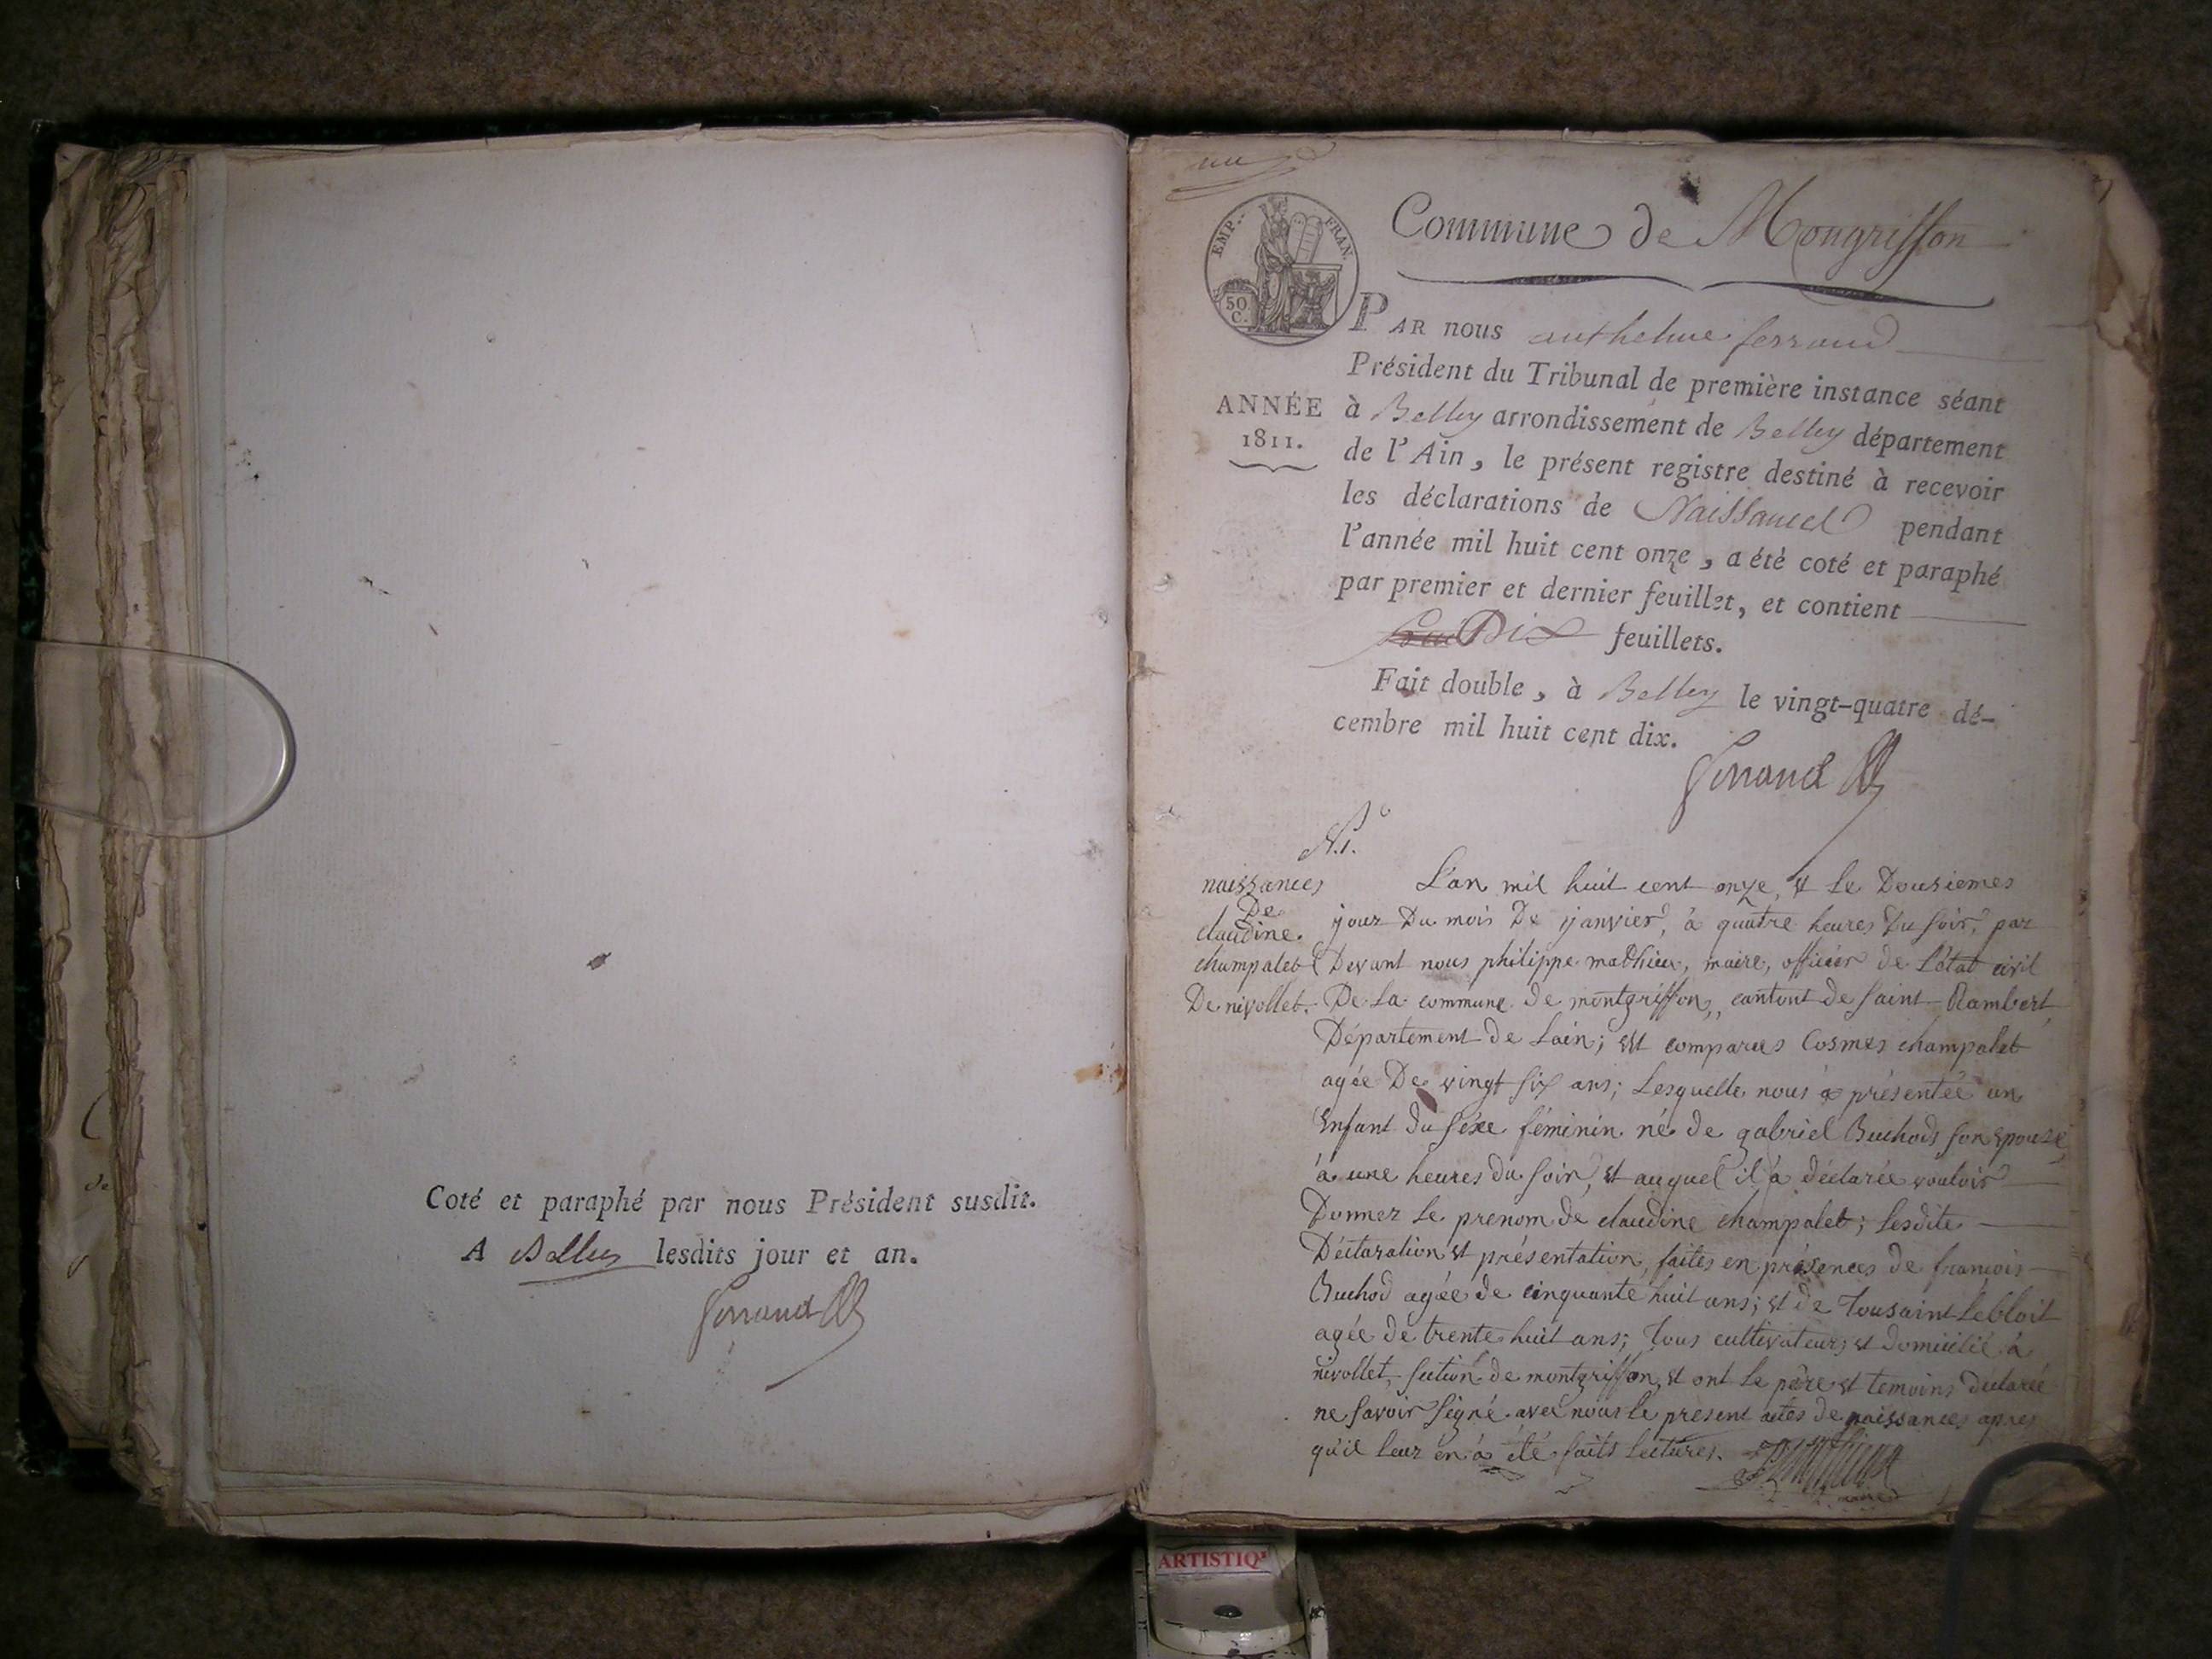 Coté et paraphé par nous Président susdit.
A Belley lesdits jour et an.
Ferrand
un
Commune de Mongriffon
EMP. FRAN.
50
C.
PAR nous anthelme ferrand
Président du Tribunal de première instance séant
ANNÉE
1811.
à Belley arrondissement de Belley département
de l'Ain, le présent registre destiné à recevoir
les déclarations de Naissances pendant
l'année mil huit cent onze, a été coté et paraphé
par premier et dernier feuillet, et contient
Dix feuillets.
Fait double, à Belley le vingt-quatre dé-
cembre mil huit cent dix.
Ferrand
N.1.
naissances
De
claudine.
champalet
De nivollet.
L'an mil huit cent onze, et le Dousiemes
jour Du mois De janvier, à quatre heures Du soir, par
Devant nous philippe mathieu, maire, officier de L'état civil
De La commune de montgriffon, cantont de saint Rambert,
Département de Lain; est comparus Cosmes champalet
agée De vingt six ans; Lesquelle nous a présentée un
Enfant du séxe féminin né de gabriel Buchod son epouze,
à une heures du soir, et auquel il à déclarée vouloir
Donner Le prenom de claudine champalet; lesdite
Déclaration et présentation, faites en présences de francois
Buchod agée de cinquante huit ans; et de Tousaint Lebloit
agée de trente huit ans; Tous cultivateurs et domicilié à
nivollet, section de montgriffon, et ont Le père et temoins déclarée
ne savoir signé avec nous le present actes de naissances apres
qu'il leur en à été faits lectures.
maire
ARTISTIQ